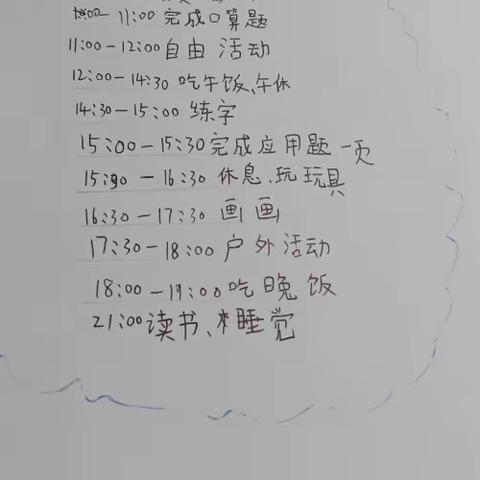 10:00-11:00 完成口算题
11:00-12:00 自由活动
12:00-14:30 吃午饭、午休
14:30-15:00 练字
15:00-15:30 完成应用题一页
15:30-16:30 休息、玩玩具
16:30-17:30 画画
17:30-18:00 户外活动
18:00-19:00 吃晚饭
21:00 读书、睡觉